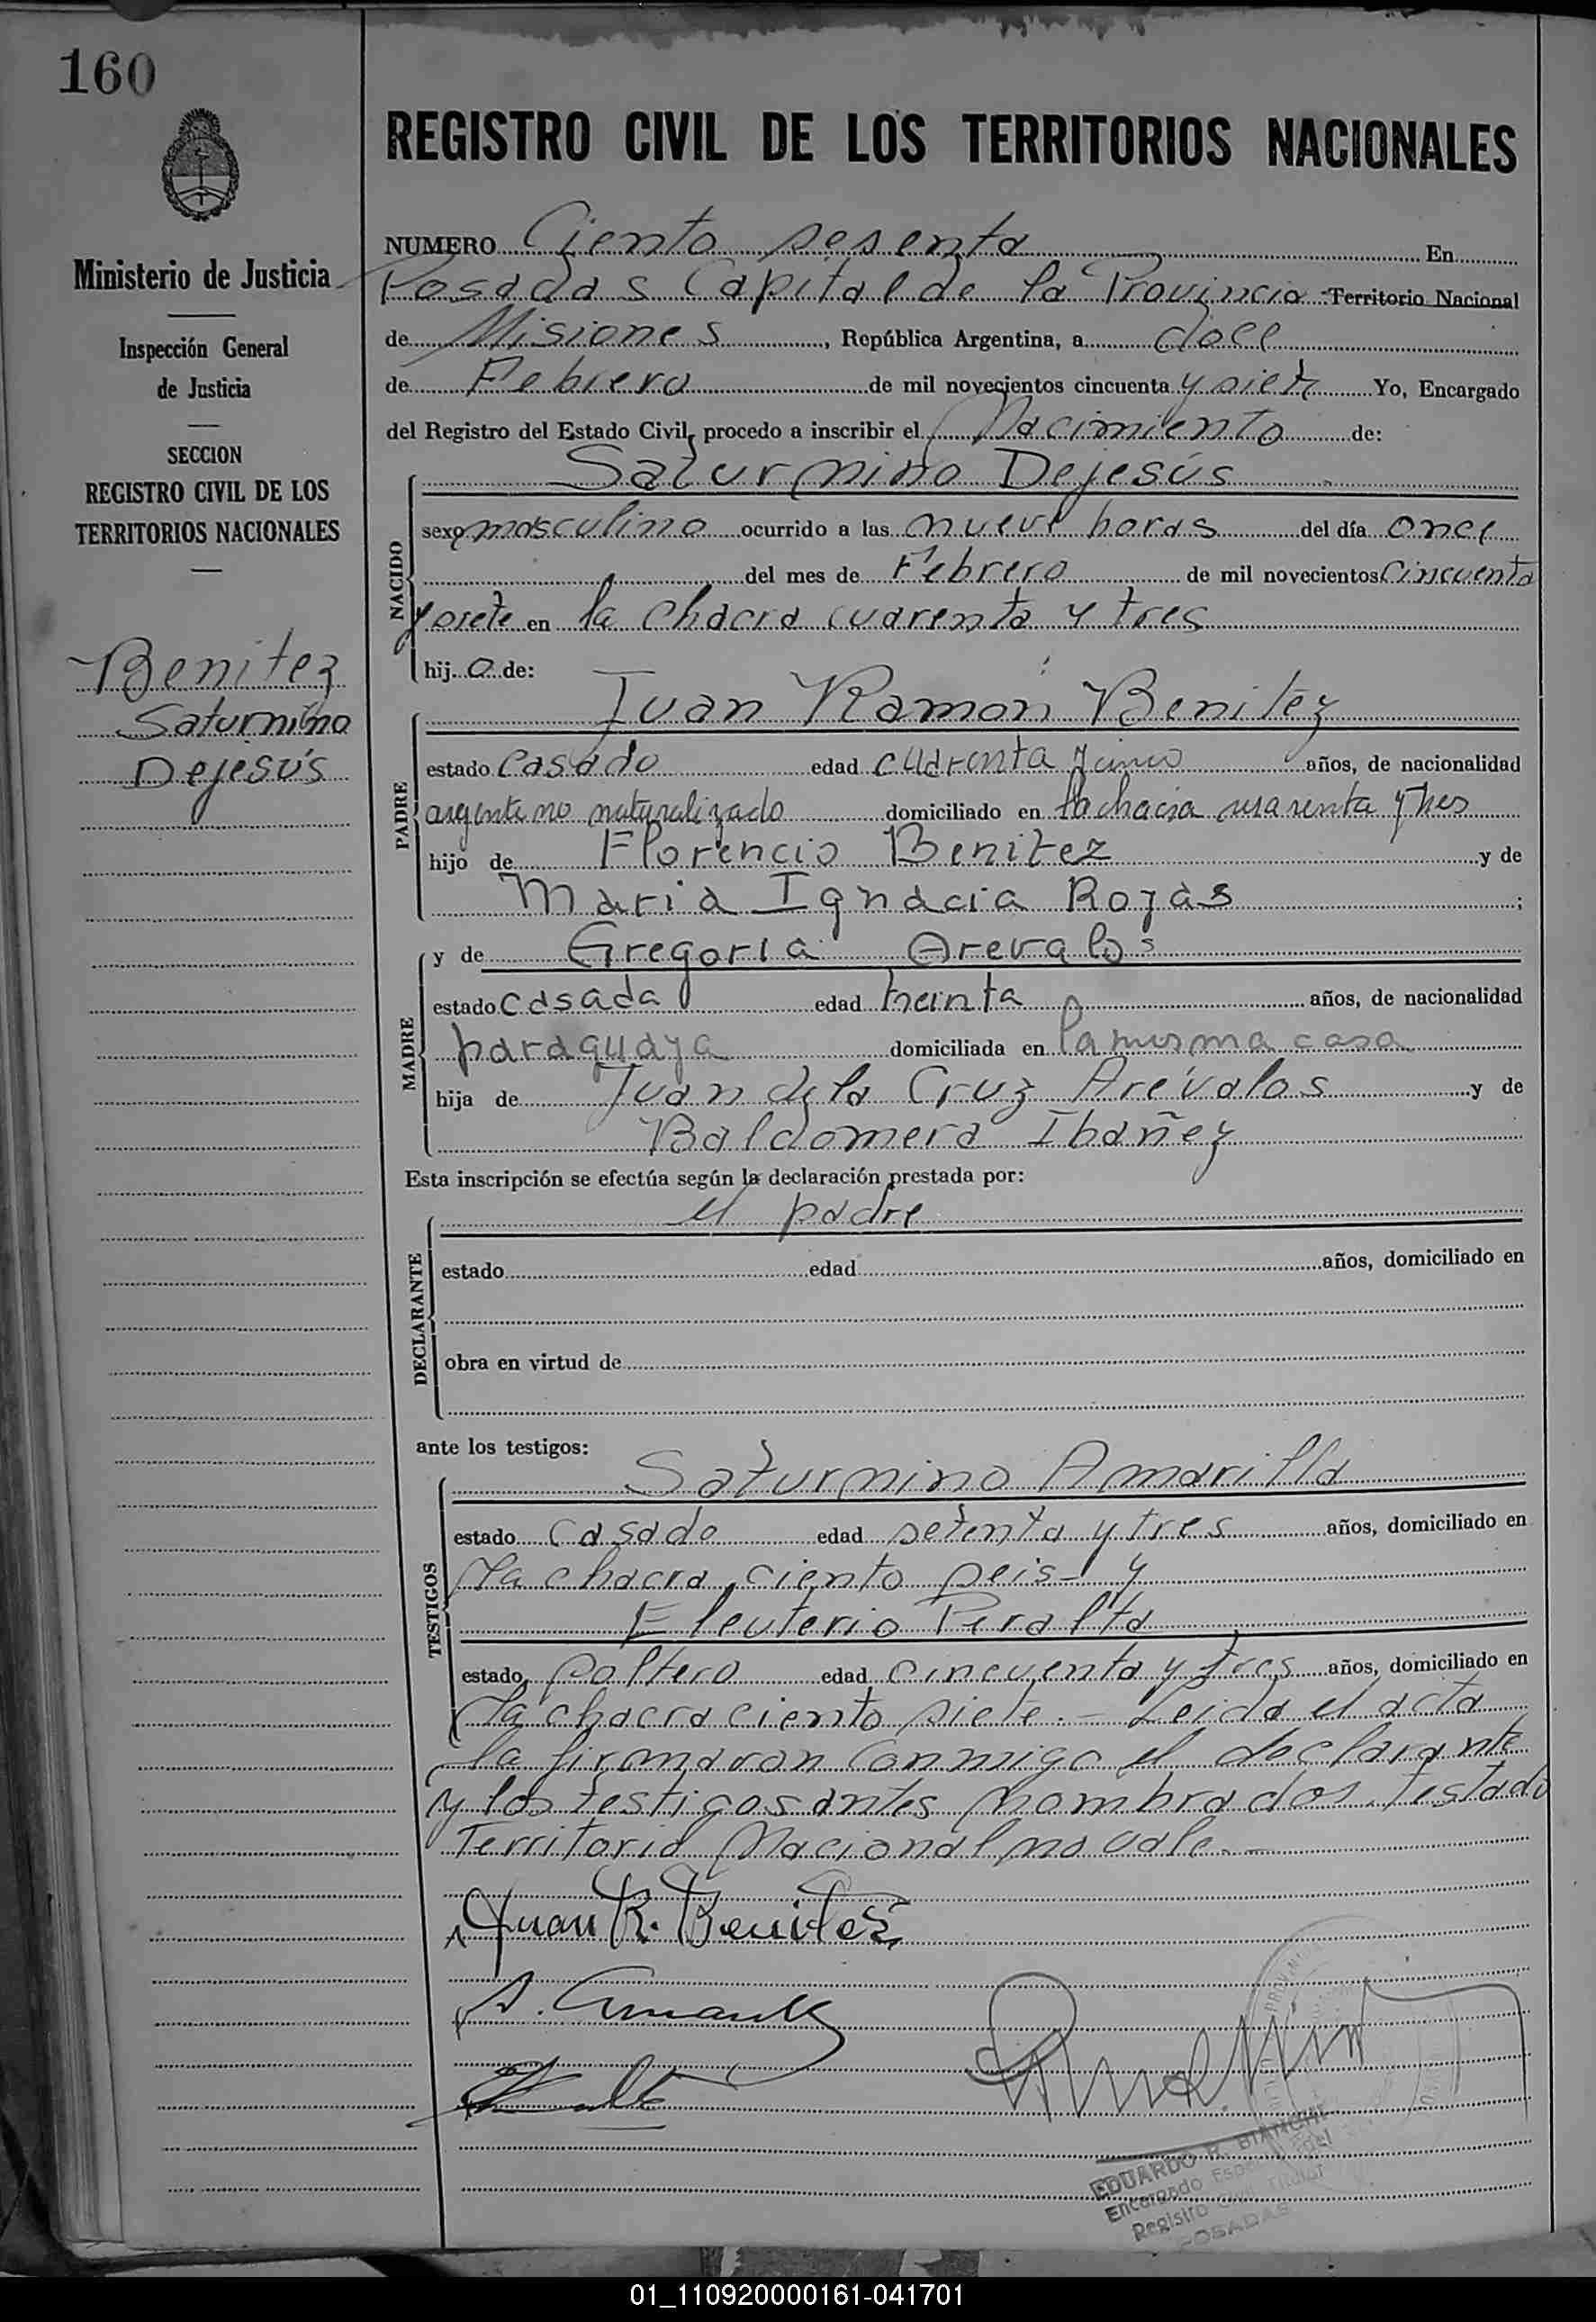 160
REGISTRO CIVIL DE LOS TERRITORIOS NACIONALES
Ministerio de Justicia
Inspección General
de Justicia
SECCION
REGISTRO CIVIL DE LOS
TERRITORIOS NACIONALES
Benitez
Saturnino
Dejesús
NUMERO Ciento sesenta En
Posadas Capital de la Provincia Territorio Nacional
de Misiones, República Argentina, a doce
de Febrero de mil novecientos cincuenta y siete Yo, Encargado
del Registro del Estado Civil, procedo a inscribir el Nacimiento de:
Saturnino Dejesús
NACIDO
sexo masculino ocurrido a las nueve horas del día once
del mes de Febrero de mil novecientos Cincuenta
y siete en la chacra cuarenta y tres
hijo de:
Juan Ramón Benitez
PADRE
estado casado edad cuarenta y cinco años, de nacionalidad
argentino naturalizado domiciliado en la chacra cuarenta y tres
hijo de Florencio Benitez y de
Maria Ignacia Rojas;
y de Gregoria Arevalos
MADRE
estado casada edad treinta años, de nacionalidad
paraguaya domiciliada en la misma casa
hija de Juan de la Cruz Arévalos y de
Baldomera Ibañez
Esta inscripción se efectúa según la declaración prestada por:
el padre
DECLARANTE
estado edad años, domiciliado en
obra en virtud de
ante los testigos:
Saturnino Amarilla
TESTIGOS
estado casado edad setenta y tres años, domiciliado en
la chacra ciento seis- y
Eleuterio Peralta
estado soltero edad cincuenta y tres años, domiciliado en
la chacra ciento siete.- Leida el acta
la firmaron conmigo el declarante
y los testigos antes nombrados. Testado
Territorio Nacional no vale.-
Juan R. Benitez
EDUARDO R. BIANCHI
Encargado
Registro Civil
POSADAS
01_110920000161-041701